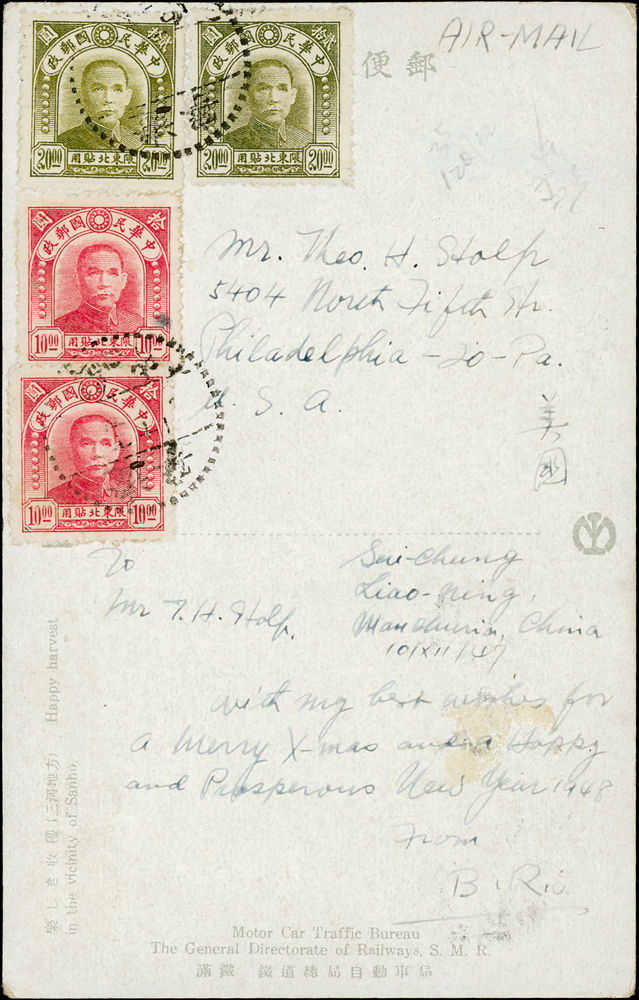 圓 貳拾
中華民國郵政
20.00 20.00
限東北貼用
圓 貳拾
中華民國郵政
20.00 20.00
限東北貼用
AIR-MAIL
便 郵
圓 拾
中華民國郵政
10.00 10.00
限東北貼用
圓 拾
中華民國郵政
10.00 10.00
限東北貼用
Mr. Theo. H. Stolp
5404 North Fifth Str.
Philadelphia - 20 - Pa.
U. S. A.
美國
To
Mr T. H. Stolp,
Sui-Chung
Liao-ning,
Manchuria, China
10/XII/47
with my best wishes for
a Merry X-mas and a Happy
and Prosperous New Year 1948
From
樂しき收穫（三河地方） Happy harvest
in the vicinity of Sanho.
Motor Car Traffic Bureau
The General Directorate of Railways, S. M. R.
滿鐵 鐵道總局自動車局